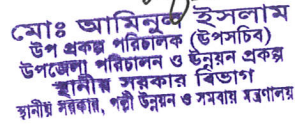 মোঃ আমিনুল ইসলাম
উপ প্রকল্প পরিচালক (উপসচিব)
উপজেলা পরিচালন ও উন্নয়ন প্রকল্প
স্থানীয় সরকার বিভাগ
স্থানীয় সরকার, পল্লী উন্নয়ন ও সমবায় মন্ত্রণালয়